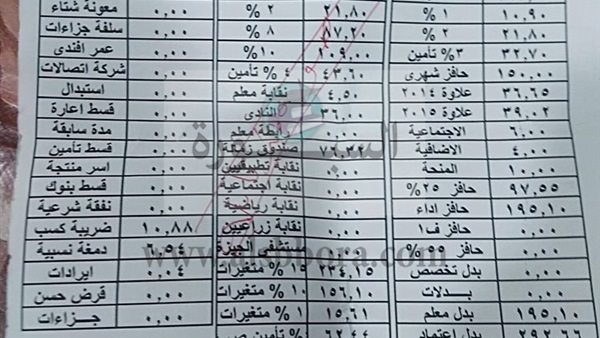 ١٠,٩٠ ١ %
٢١,٨٠ ٢ %
٣٢,٧٠ ٣% تأمين
١٥٠,٠٠ حافز شهرى
٣٦,٦٥ علاوة ٢٠١٤
٣٩,٠٢ علاوة ٢٠١٥
٦,٠٠ الاجتماعية
٤,٠٠ الاضافية
١٠,٠٠ المنحة
٩٧,٥٥ حافز ٢٥%
١٩٥,١٠ حافز اداء
٠,٠٠ حافز ف١
٠,٠٠ حافز ٥٥ %
٠,٠٠ بدل تخصص
٠,٠٠ بدلات
١٩٥,١٠ بدل معلم
٢٩٢,٦٦ بدل اعتماد
٢١,٨٠ ٢ %
٨٧,٢٠ ٨ %
١٠٩,٠٠ ١٠%
٤٣,٦٠ ٤ % تأمين
٤,٥٠ نقابة معلم
٣٦,٠٠ النادى
٠,٠٠ رابطة معلم
٧٦,٣٢ صندوق زمالة
نقابة تطبيقيين
٠,٠٠ نقابة اجتماعية
٠,٠٠ نقابة رياضية
٠,٠٠ نقابة زراعيين
٠,٠٠ مستشفى الجيزة
٢٣٤,١٥ ١٥ % متغيرات
١٥٦,١٠ ١٠ % متغيرات
١٥,٦١ ١ % متغيرات
٦٢,٤٤ ٤ % تأمين
٠,٠٠ معونة شتاء
٠,٠٠ سلفة جزاءات
٠,٠٠ عمر افندى
٠,٠٠ شركة اتصالات
٠,٠٠ استبدال
٠,٠٠ قسط اعارة
٠,٠٠ مدة سابقة
٠,٠٠ قسط تأمين
٠,٠٠ اسر منتجة
٠,٠٠ قسط بنوك
٠,٠٠ نفقة شرعية
١٠,٨٨ ضريبة كسب
٦,٥٤ دمغة نسبية
٠,٠٤ ايرادات
٠,٠٠ قرض حسن
٠,٠٠ جزاءات